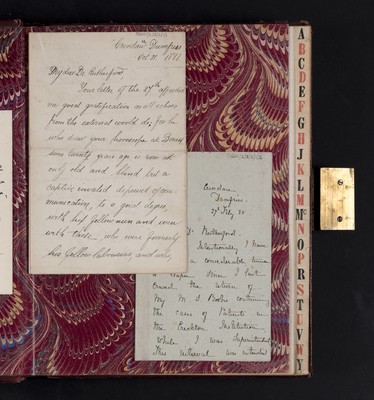 Crindau Dumfries
Oct 21. 1881
My dear Dr. Rutherford,
Your letter of the 17th afforded
me great gratification as all echoes
from the external world do, for he
who drew your horoscope at
some twenty years ago is now not
only old and blind but a
captive invalid deprived of com-
munication, to a great degree,
with his fellow men and even
with those who were formerly
his fellow labourers and why
Crindau
Dumfries.
27 July 80
Dr Rutherford
Intentionally I have
a considerable time
to elapse since I last
craved the return of
My M S Books containing
the cases of Patients in
the Crichton Institution
While I was Superintendent
This interval was extended
A
B
C
D
E
F
G
H
J
K
L
M
Mc
N
O
P
R
S
T
U
V
W
Y